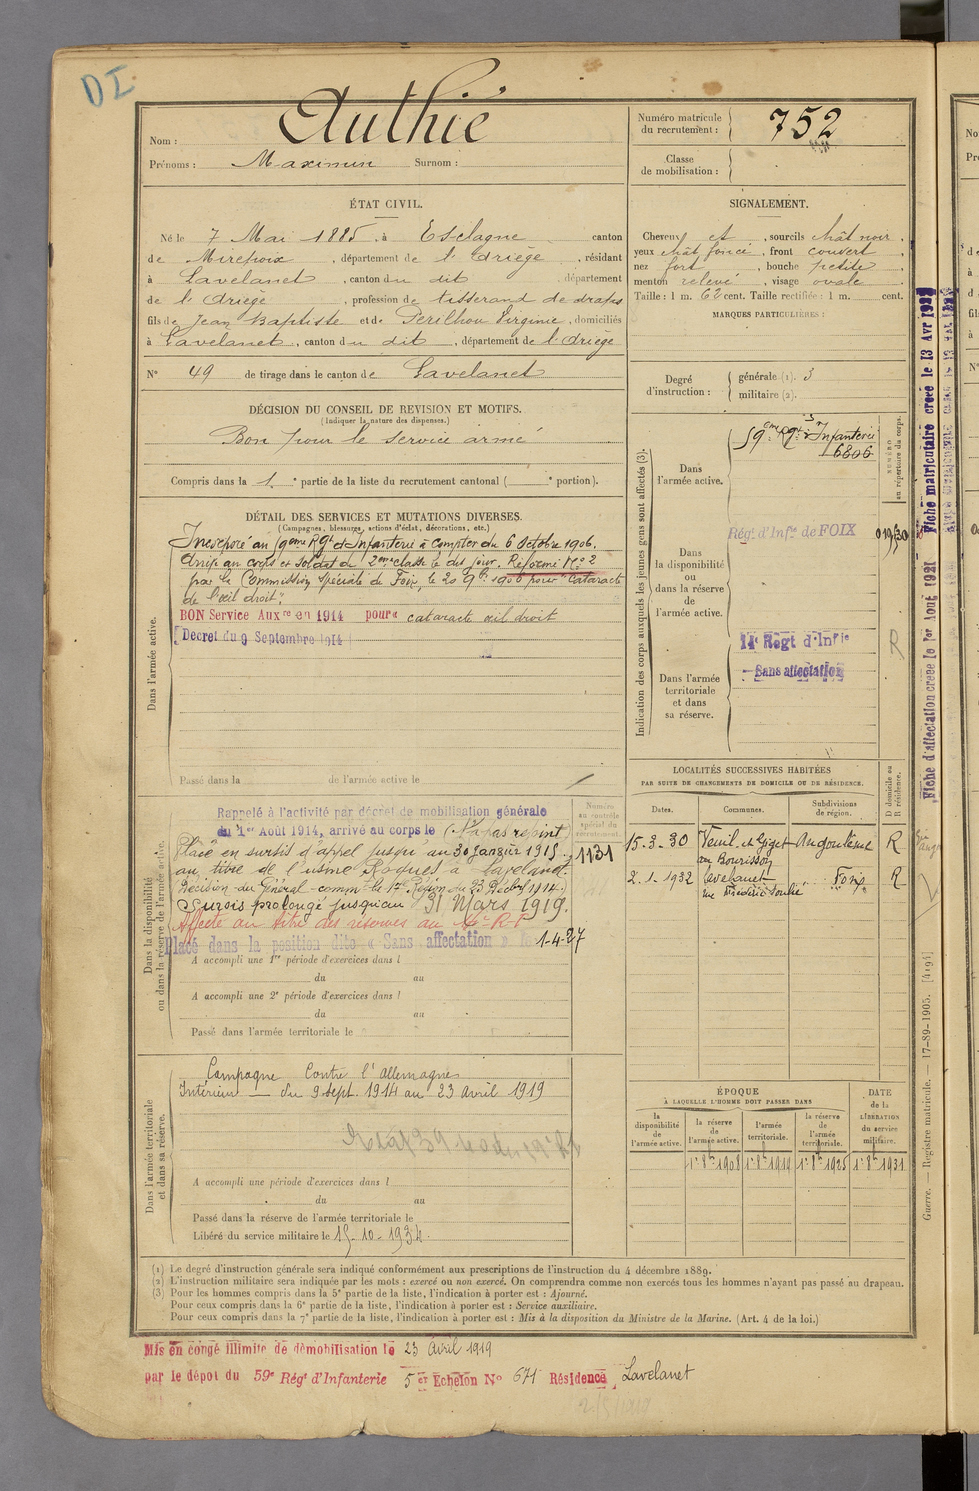 DI
Nom : Authié
Prénoms : Maximin Surnom :
Numéro matricule du recrutement : 752
Classe de mobilisation :
ÉTAT CIVIL.
Né le 7 Mai 1885, à Esclagne canton
de Mirepoix, département de l'Ariège, résidant
à Lavelanet, canton du dit département
de l'Ariège, profession de tisserand de draps
fils de Jean Baptiste et de Perilhou Virginie, domiciliés
à Lavelanet, canton du dit, département de l'Ariège
N° 49 de tirage dans le canton de Lavelanet
SIGNALEMENT.
Cheveux et, sourcils chât noir,
yeux chât foncé, front couvert,
nez fort, bouche petite,
menton relevé, visage ovale.
Taille : 1 m. 62 cent. Taille rectifiée : 1 m. cent.
MARQUES PARTICULIÈRES :
Degré d'instruction : générale (1). 3
militaire (2).
DÉCISION DU CONSEIL DE REVISION ET MOTIFS.
(Indiquer la nature des dispenses.)
Bon pour le service armé
Compris dans la 1e partie de la liste du recrutement cantonal ( e portion).
DÉTAIL DES SERVICES ET MUTATIONS DIVERSES.
(Campagnes, blessures, actions d'éclat, décorations, etc.)
Dans l'armée active.
Incorporé au 59eme Rgt d'Infanterie à compter du 6 Octobre 1906.
Arrivé au corps et soldat de 2eme classe le dit jour. Réformé N° 2
par la Commission spéciale de Foix le 20 9bre 1906 pour "cataracte
de l'œil droit"
BON Service Auxre en 1914 pour « cataracte œil droit
Décret du 9 Septembre 1914
Passé dans la de l'armée active le
Indication des corps auxquels les jeunes gens sont affectés (3).
NUMÉRO au répertoire du corps.
Dans l'armée active.
59eme Rgt d'Infanterie
6806
Dans la disponibilité ou dans la réserve de l'armée active.
Régt d'Infie de FOIX
Dans l'armée territoriale et dans sa réserve.
Regt d'Infie
Sans affectation
R
Dans la disponibilité ou dans la réserve de l'armée active.
Numéro au contrôle spécial du recrutement.
Rappelé à l'activité par décret de mobilisation générale
du 1er Août 1914, arrivé au corps le (N'a pas rejoint)
Placé en sursis d'appel jusqu'au 30 janvier 1915
1131
au titre de l'usine Roques à Lavelanet.
Décision du Général comm la Région du 23 Décbre 1914.
Sursis prolongé jusqu'au 31 Mars 1919.
Affecté au titre des réserves au
Placé dans la position dite « Sans affectation » le 1-4-27
A accompli une 1re période d'exercices dans l
du au
A accompli une 2e période d'exercices dans l
du au
Passé dans l'armée territoriale le
LOCALITÉS SUCCESSIVES HABITÉES
PAR SUITE DE CHANGEMENTS DE DOMICILE OU DE RÉSIDENCE.
Dates. Communes. Subdivisions de région. D domicile ou R résidence.
15-3-30 Veuil et Giget au Bourisson Angoulême R
2-1-1932 Lavelanet rue Frédéric Soulié Foix R
Dans l'armée territoriale et dans sa réserve.
Campagne Contre l'Allemagne
Intérieur — du 9 sept. 1914 au 23 avril 1919
A accompli une période d'exercices dans l
du au
Passé dans la réserve de l'armée territoriale le
Libéré du service militaire le 15-10-1934.
ÉPOQUE
À LAQUELLE L'HOMME DOIT PASSER DANS
DATE de la LIBÉRATION du service militaire.
la disponibilité de l'armée active. la réserve de l'armée active. l'armée territoriale. la réserve de l'armée territoriale.
1er 8bre 1908 1er 8bre 1919 1er 8bre 1925 1er 8bre 1931
(1) Le degré d'instruction générale sera indiqué conformément aux prescriptions de l'instruction du 4 décembre 1889.
(2) L'instruction militaire sera indiquée par les mots : exercé ou non exercé. On comprendra comme non exercés tous les hommes n'ayant pas passé au drapeau.
(3) Pour les hommes compris dans la 5e partie de la liste, l'indication à porter est : Ajourné.
Pour ceux compris dans la 6e partie de la liste, l'indication à porter est : Service auxiliaire.
Pour ceux compris dans la 7e partie de la liste, l'indication à porter est : Mis à la disposition du Ministre de la Marine. (Art. 4 de la loi.)
Mis en congé illimité de démobilisation le 23 avril 1919
par le dépôt du 59e Régt d'Infanterie 5 er Echelon N° 671 Résidence Lavelanet
Fiche d'affectation créée le 1er Août 1921
Fiche matriculaire créée le 13 Avr
Guerre. — Registre matricule. — 17-89-1905. [4194]